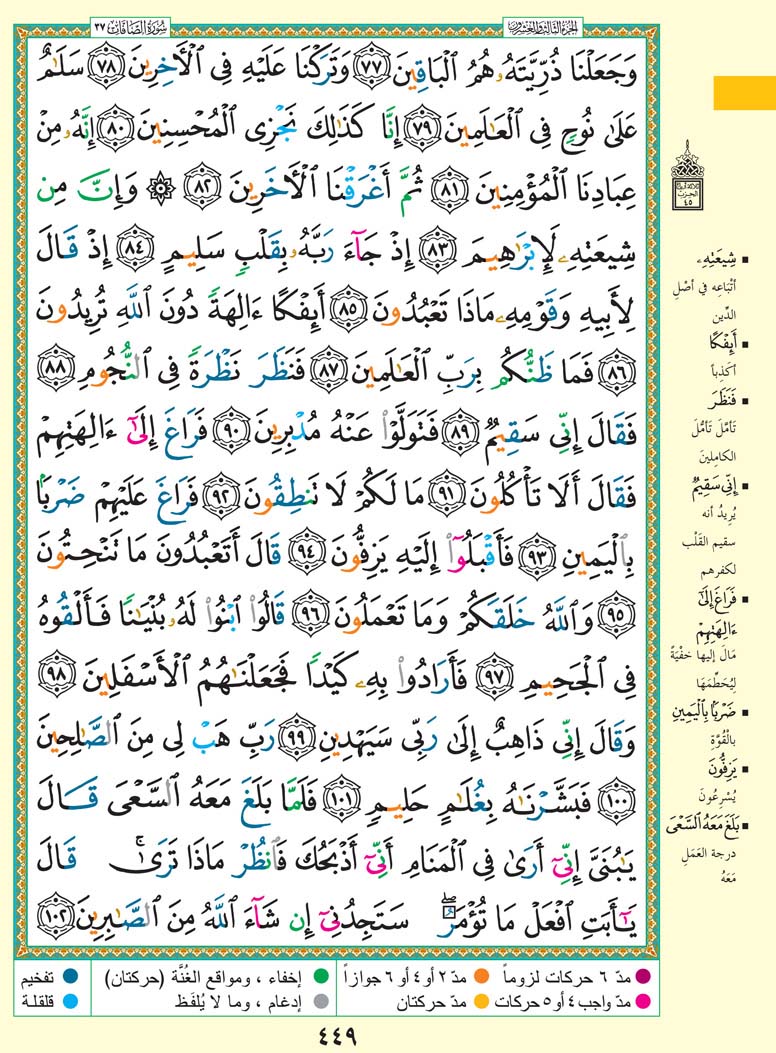 سُورَةُ الصَّافَّاتِ ٣٧
الجزء الثالث والعشرون
وَجَعَلْنَا ذُرِّيَّتَهُۥ هُمُ ٱلْبَاقِينَ ٧٧ وَتَرَكْنَا عَلَيْهِ فِى ٱلْأَخِرِينَ ٧٨ سَلَٰمٌ
عَلَىٰ نُوحٍ فِى ٱلْعَٰلَمِينَ ٧٩ إِنَّا كَذَٰلِكَ نَجْزِى ٱلْمُحْسِنِينَ ٨٠ إِنَّهُۥ مِنْ
عِبَادِنَا ٱلْمُؤْمِنِينَ ٨١ ثُمَّ أَغْرَقْنَا ٱلْأَخَرِينَ ٨٢ ۞ وَإِنَّ مِن
شِيعَتِهِۦ لَإِبْرَٰهِيمَ ٨٣ إِذْ جَآءَ رَبَّهُۥ بِقَلْبٍ سَلِيمٍ ٨٤ إِذْ قَالَ
لِأَبِيهِ وَقَوْمِهِۦ مَاذَا تَعْبُدُونَ ٨٥ أَئِفْكًا ءَالِهَةً دُونَ ٱللَّهِ تُرِيدُونَ
٨٦ فَمَا ظَنُّكُم بِرَبِّ ٱلْعَٰلَمِينَ ٨٧ فَنَظَرَ نَظْرَةً فِى ٱلنُّجُومِ ٨٨
فَقَالَ إِنِّى سَقِيمٌ ٨٩ فَتَوَلَّوْا۟ عَنْهُ مُدْبِرِينَ ٩٠ فَرَاغَ إِلَىٰٓ ءَالِهَتِهِمْ
فَقَالَ أَلَا تَأْكُلُونَ ٩١ مَا لَكُمْ لَا تَنطِقُونَ ٩٢ فَرَاغَ عَلَيْهِمْ ضَرْبًۢا
بِٱلْيَمِينِ ٩٣ فَأَقْبَلُوٓا۟ إِلَيْهِ يَزِفُّونَ ٩٤ قَالَ أَتَعْبُدُونَ مَا تَنْحِتُونَ
٩٥ وَٱللَّهُ خَلَقَكُمْ وَمَا تَعْمَلُونَ ٩٦ قَالُوا۟ ٱبْنُوا۟ لَهُۥ بُنْيَٰنًا فَأَلْقُوهُ
فِى ٱلْجَحِيمِ ٩٧ فَأَرَادُوا۟ بِهِۦ كَيْدًا فَجَعَلْنَٰهُمُ ٱلْأَسْفَلِينَ ٩٨
وَقَالَ إِنِّى ذَاهِبٌ إِلَىٰ رَبِّى سَيَهْدِينِ ٩٩ رَبِّ هَبْ لِى مِنَ ٱلصَّٰلِحِينَ
١٠٠ فَبَشَّرْنَٰهُ بِغُلَٰمٍ حَلِيمٍ ١٠١ فَلَمَّا بَلَغَ مَعَهُ ٱلسَّعْىَ قَالَ
يَٰبُنَىَّ إِنِّىٓ أَرَىٰ فِى ٱلْمَنَامِ أَنِّىٓ أَذْبَحُكَ فَٱنظُرْ مَاذَا تَرَىٰ ۚ قَالَ
يَٰٓأَبَتِ ٱفْعَلْ مَا تُؤْمَرُ ۖ سَتَجِدُنِىٓ إِن شَآءَ ٱللَّهُ مِنَ ٱلصَّٰبِرِينَ ١٠٢
الحزب
٤٥
▪ شِيعَتِهِۦ
أتْبَاعِه في أصْلِ
الدِّين
▪ أَئِفْكًا
أكَذِباً
▪ فَنَظَرَ
تَأمَّلَ تَأمُّلَ
الكامِلينَ
▪ إِنِّى سَقِيمٌ
يُرِيدُ أنه
سقيم القَلْب
لكفرهم
▪ فَرَاغَ إِلَىٰٓ
ءَالِهَتِهِمْ
مَالَ إليها خفْيَةً
لِيُحَطِّمَهَا
▪ ضَرْبًۢا بِٱلْيَمِينِ
بالقُوَّةِ
▪ يَزِفُّونَ
يُسْرِعُونَ
▪ بَلَغَ مَعَهُ ٱلسَّعْىَ
درجة العَمَلِ
مَعَهُ
مدّ ٦ حركات لزوماً مدّ ٢ أو ٤ أو ٦ جوازاً إخفاء ، ومواقع الغُنَّة (حركتان) تفخيم
مدّ واجب ٤ أو ٥ حركات مدّ حركتان إدغام ، وما لا يُلفَظ قلقلة
٤٤٩